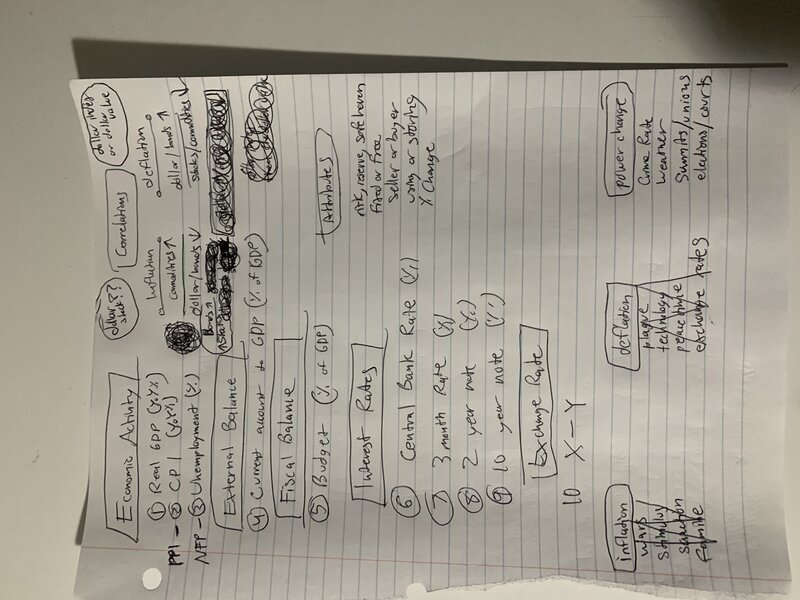 Economic Activity
① Real GDP (YoY%)
PPI - ② CPI (YoY%)
NFP - ③ Unemployment (%)
External Balance
④ Current account to GDP (% of GDP)
Fiscal Balance
⑤ Budget (% of GDP)
Interest Rates
⑥ Central Bank Rate (%)
⑦ 3 month Rate (%)
⑧ 2 year note (%)
⑨ 10 year note (%)
Exchange Rate
10 X-Y
Correlations
dollar index
or dollar value
inflation
commodities ↑
dollar/bonds ↓
deflation
dollar/bonds ↑
stocks/commodities ↓
Bonds
Attributes
risk, reserve, safe haven
Fixed or Free
Seller or buyer
using or storing
% Change
inflation
wars
stimulus
sanction
famine
deflation
plague
technology
peacetime
exchange rates
power change
Crime Rate
weather
Summits/unions
elections/courts